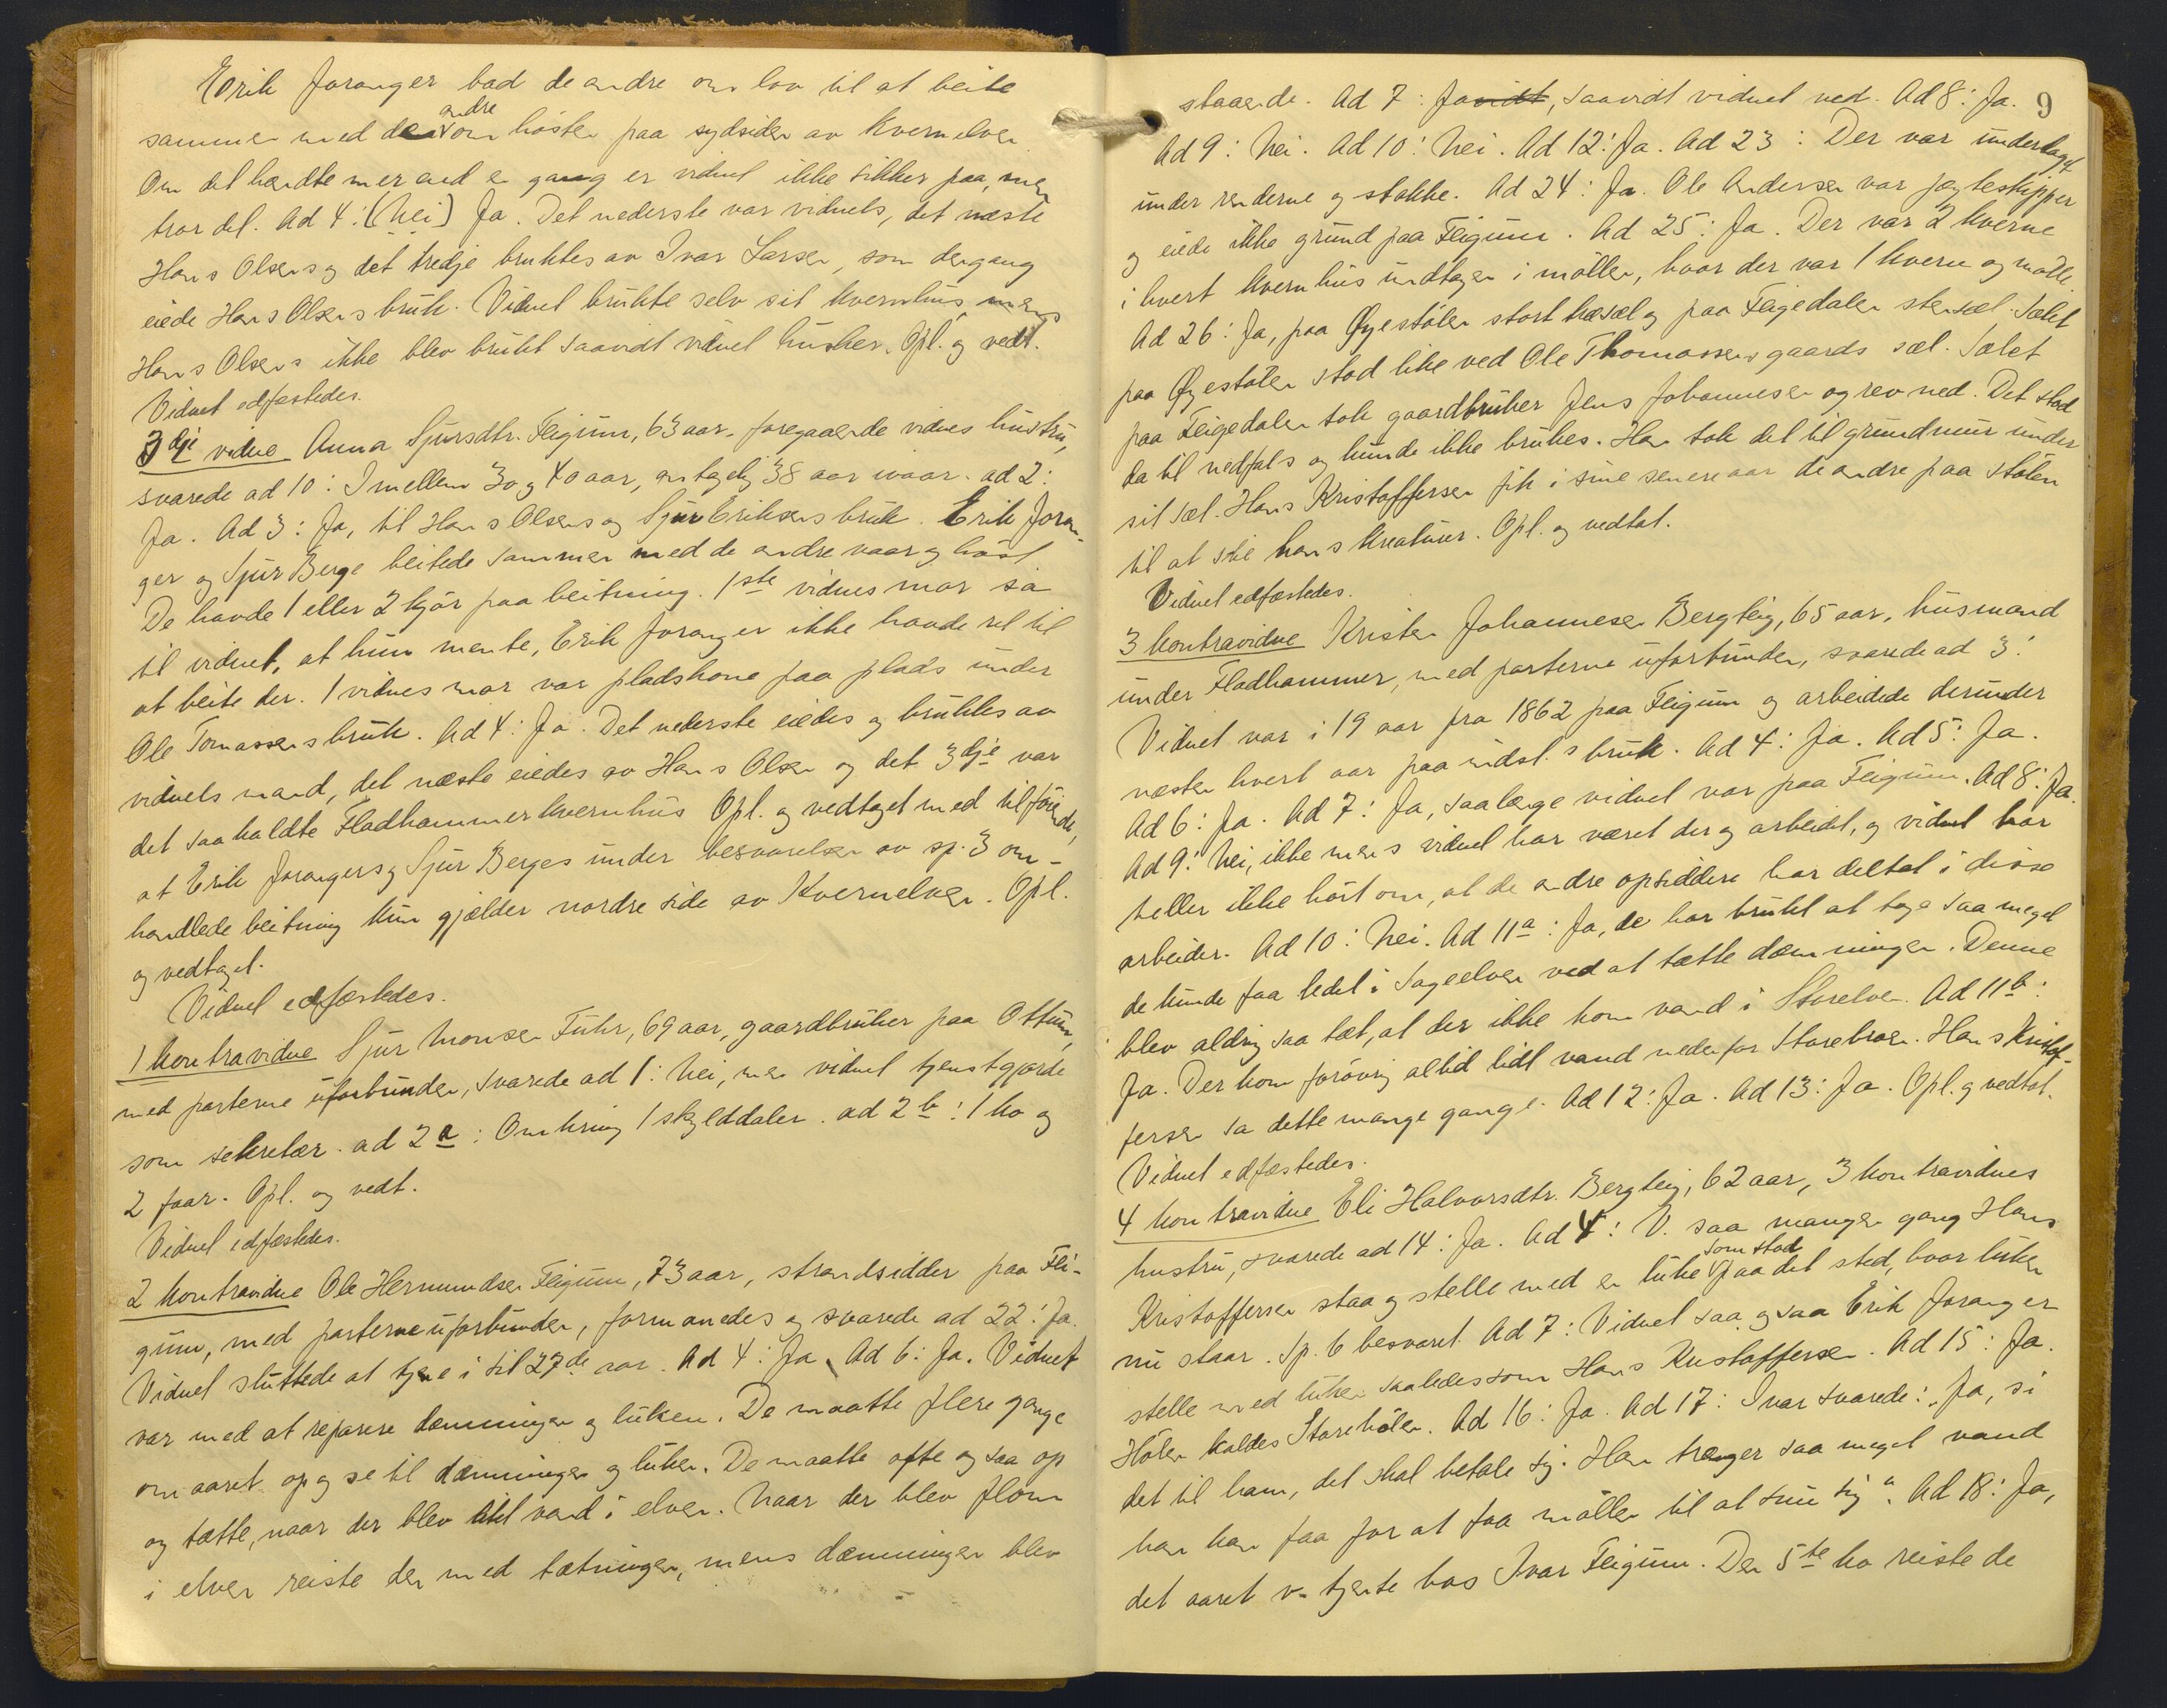 Erik Joranger bad de andre om lov til at beite
sammen med de andre om hösten paa sydsiden av Kvernelven
Om det hændte mer end en gang er vidnet ikke sikker paa, men
tror det. Ad 4: (Nei) Ja. Det nederste var vidnets, det næste
Hans Olsens og det tredje bruktes av Ivar Larsen, som dengang
eiede Hans Olsens bruk. Vidnet brukte selv sit kvernhus, mens
Hans Olsens ikke blev brukt saavidt vidnet husker. Opl. og vedt.
Vidnet edfæstedes.
3dje vidne Anna Sjursdtr. Feigum, 63 aar, foregaaende vidnes hustru,
svarede ad 10: Imellem 30 og 40 aar, antagelig 38 aar ivaar. ad 2:
Ja. Ad 3: Ja, til Hans Olsens og Sjur Eriksens bruk. Erik Joran-
ger og Sjur Berge beitede sammen med de andre vaar og höst
De havde 1 eller 2 kjör paa beitning. 1ste vidnes mor sa
til vidnet, at hun mente, Erik Joranger ikke havde ret til
at beite der. 1 vidnes mor var pladskone paa plads under
Ole Tomassens bruk. Ad 4: Ja. Det nederste eiedes og bruktes av
vidnets mand, det næste eiedes av Hans Olsen og det 3dje var
det saakaldte Fladhammerkvernhus Opl. og vedtaget med tilföiende,
at Erik Jorangers og Sjur Berges under besvarelsen av sp. 3 om-
handlede beitning kun gjælder nordre side av Kvernelven. Opl.
og vedtaget.
Vidnet edfæstedes.
1 kontravidne Sjur Monsen Fuhr, 69 aar, gaardbruker paa Ottum,
med parterne uforbunden, svarede ad 1: Nei, men vidnet tjenstgjorde
som sekretær. ad 2a: Omkring 1 skylddaler. ad 2b: 1 ko og
2 faar. Opl. og vedt.
Vidnet edfæstedes.
2 kontravidne Ole Hermundsen Feigum, 73 aar, strandsidder paa Fei-
gum, med parterne uforbunden, formanedes og svarede ad 22: Ja.
Vidnet sluttede at tjene i sit 27de aar. Ad 4: Ja. Ad 6: Ja. Vidnet
var med at reparere dæmningen og luken. De maatte flere gange
om aaret op og se til dæmningen og luken. De maatte ofte og saa op
og tætte, naar der blev litet vand i elven. Naar der blev flom
i elven reiste den med tætningen, mens dæmningen blev
9
staaende. Ad 7: Javidt, saavidt vidnet ved. Ad 8: Ja.
Ad 9: Nei. Ad 10: Nei. Ad 12: Ja. Ad 23: Der var underlaget
under renderne og stokke. Ad 24: Ja. Ole Andersen var jægteskipper
og eiede ikke grund paa Feigum. Ad 25: Ja. Der var 2 kverne
i hvert kvernhus undtagen i möllen, hvor der var 1 kvern og mölle.
Ad 26: Ja, paa Öyestölen stort træsæl og paa Feigedalen stensæl. Sælet
paa Öyestölen stod like ved Ole Thomassens gaards sæl. Sælet
paa Feigedalen tok gaardbruker Jens Johannesen og rev ned. Det stod
da til nedfals og kunde ikke brukes. Han tok det til grundmur under
sit sæl. Hans Kristoffersen fik i sine senere aar de andre paa stölen
til at stie hans kreaturer. Opl. og vedtat.
Vidnet edfæstedes.
3 kontravidne Kristen Johannesen Bergteig, 65 aar, husmand
under Fladhammer, med parterne uforbunden, svarede ad 3:
Vidnet var i 19 aar fra 1862 paa Feigum og arbeidede derunder
næsten hvert aar paa indst.s bruk. Ad 4: Ja. Ad 5: Ja.
Ad 6: Ja. Ad 7: Ja, saalænge vidnet var paa Feigum. Ad 8: Ja.
Ad 9: Nei, ikke mens vidnet har været der og arbeidet, og vidnet har
heller ikke hört om, at de andre opsiddere har deltat i disse
arbeider. Ad 10: Nei. Ad 11a: Ja, de har brukt at tage saa meget
de kunde faa ledet i Sageelven ved at tætte dæmningen. Denne
blev aldrig saa tæt, at der ikke kom vand i Storelven. Ad 11b:
Ja. Der kom forövrig altid lidt vand nedenfor Storebroen. Hans Kristof-
fersen sa dette mange gange. Ad 12: Ja. Ad 13: Ja. Opl. og vedtat.
Vidnet edfæstedes.
4 kontravidne Eli Halvorsdtr. Bergteig, 62 aar, 3 kontravidnes
hustru, svarede ad 14: Ja. Ad 4: V. saa mangen gang Hans
Kristoffersen staa og stelle med en luke som stod paa det sted, hvor luken
nu staar. Sp. 6 besvaret. Ad 7: Vidnet saa og saa Erik Joranger
stelle med luken saaledes som Hans Kristoffersen. Ad 15: Ja.
Hölen kaldes Storehölen. Ad 16: Ja. Ad 17: Ivar svarede: „Ja, si
det til ham, det skal betale sig. Han trænger saa meget vand
han kan faa for at faa möllen til at snu sig“. Ad 18: Ja,
det aaret v. tjente hos Ivar Feigum. Den 5te ko reiste de